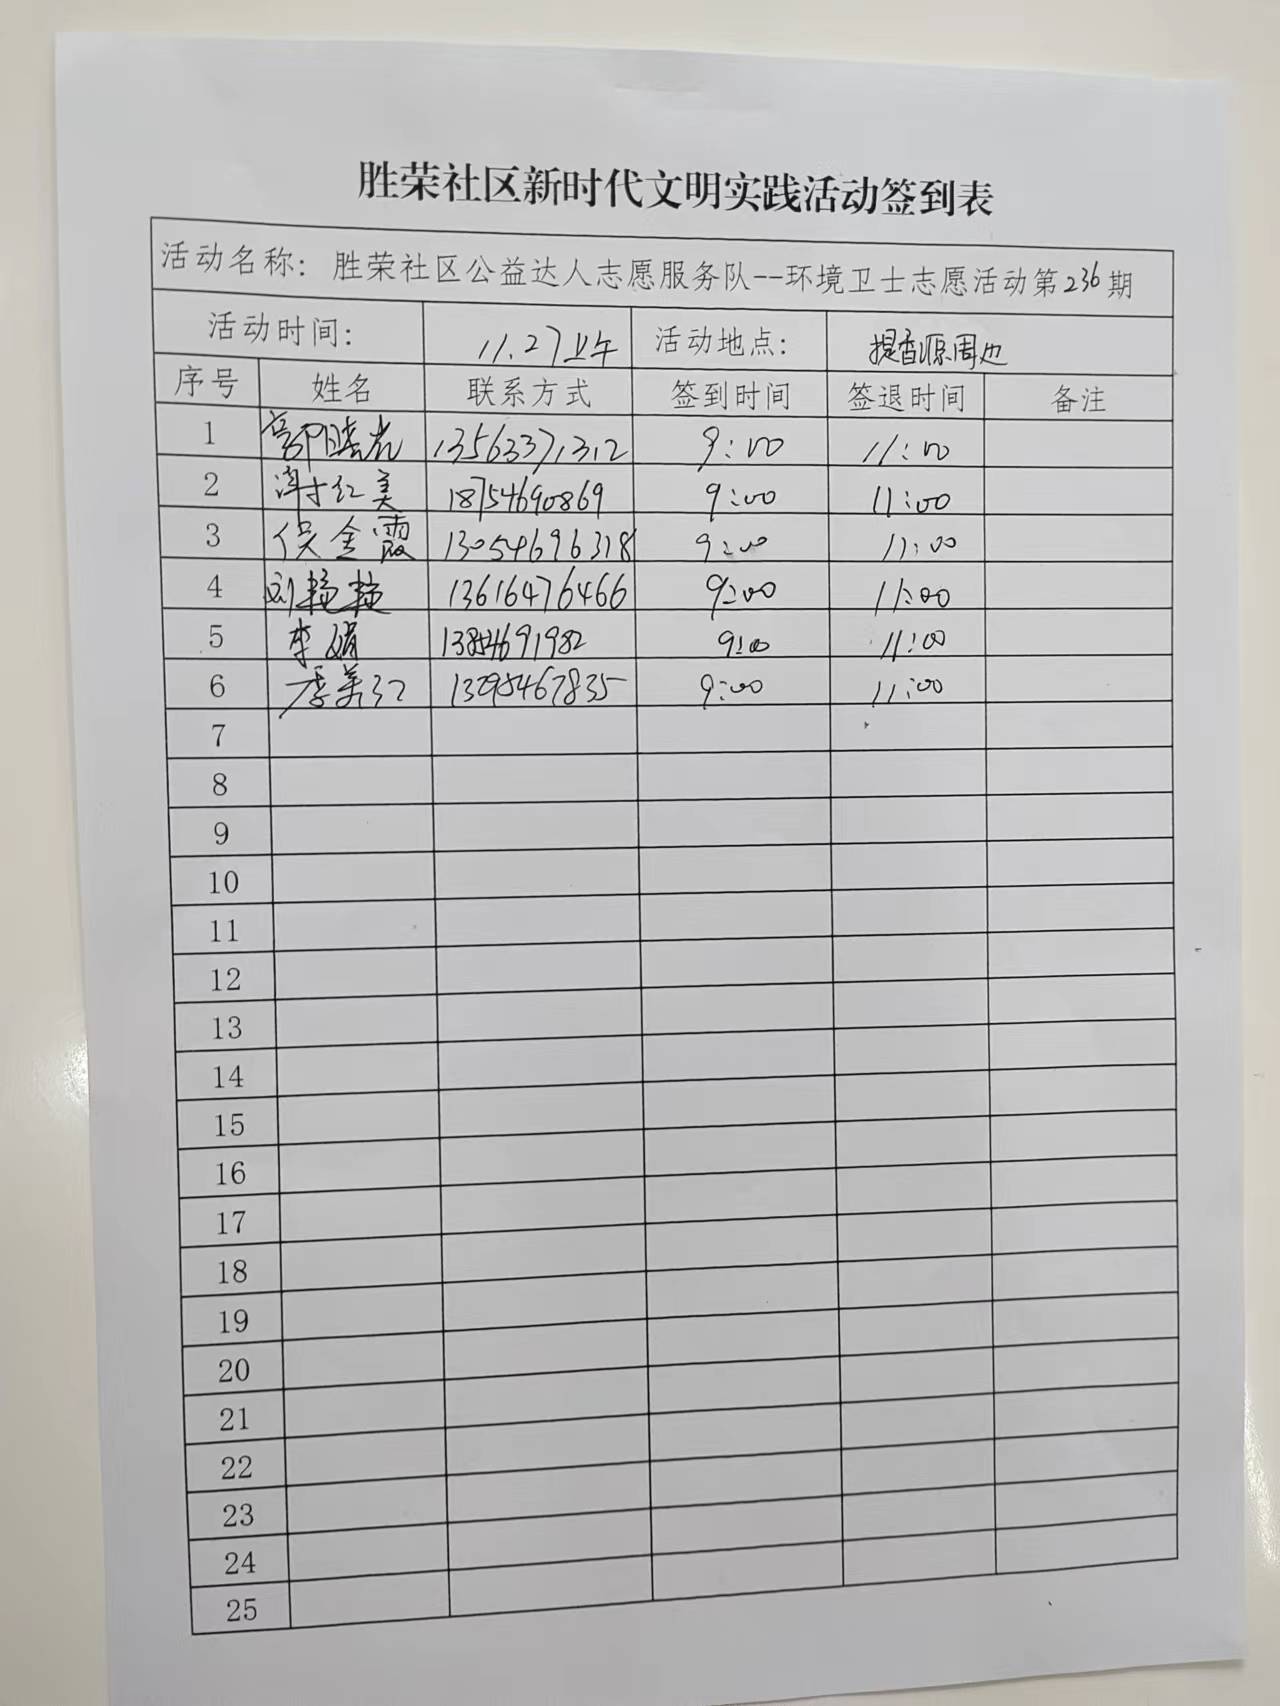 胜荣社区新时代文明实践活动签到表
活动名称：胜荣社区公益达人志愿服务队--环境卫士志愿活动第236期
活动时间： 11.27上午 活动地点： 提香源周边
序号 姓名 联系方式 签到时间 签退时间 备注
1 13563371312 9:00 11:00
2 谢红美 18754690869 9:00 11:00
3 侯金霞 13054696318 9:00 11:00
4 刘艳艳 13616476466 9:00 11:00
5 李娟 13854691982 9:00 11:00
6 李美江 13295467835 9:00 11:00
7
8
9
10
11
12
13
14
15
16
17
18
19
20
21
22
23
24
25